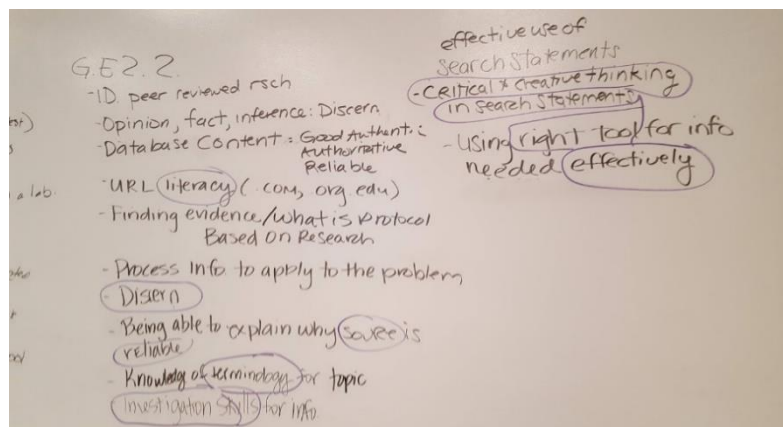 G.E 2.2.
- ID peer reviewed rsch
- Opinion, fact, inference: Discern
- Database Content: Good Authent:
Authoritative
Reliable
- URL literacy (.com, org, edu)
- Finding evidence/what is protocol
Based on Research
- Process Info to apply to the problem
- Discern
- Being able to explain why source is
reliable
- Knowledg of terminology for topic
Investigation skills for info
effective use of
search statements
- Critical & creative thinking
in search statements
- Using right tool for info
needed effectively
a lab.